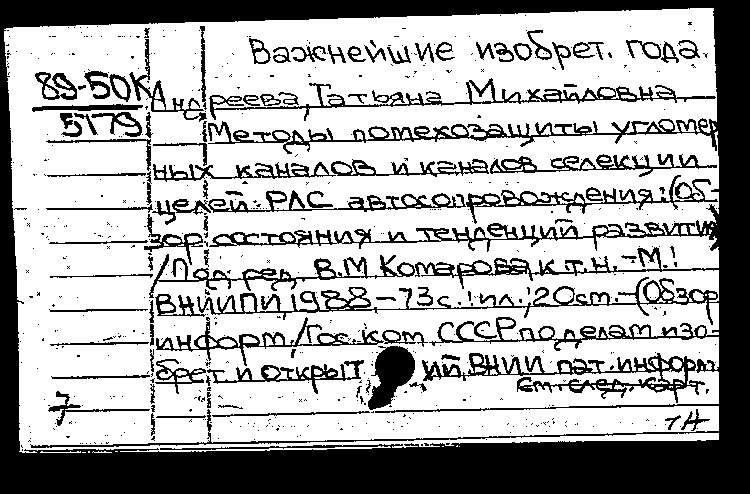 Важнейшие изобрет. года.
89-50К Андреева, Татьяна Михайловна.
5179 Методы помехозащиты угломер
ных каналов и каналов селекции
целей РЛС автосопровождения: (Об-
зор состояния и тенденций развития)
/Под ред. В.М Комарова, к.т.н. -М.:
ВНИИПИ, 1988, -73с.: ил.; 20 см. -(Обзор
информ./Гос. ком. СССР по делам изо-
брет и открыт ий, ВНИИ пат. информ.
См. след. карт.
7
тН